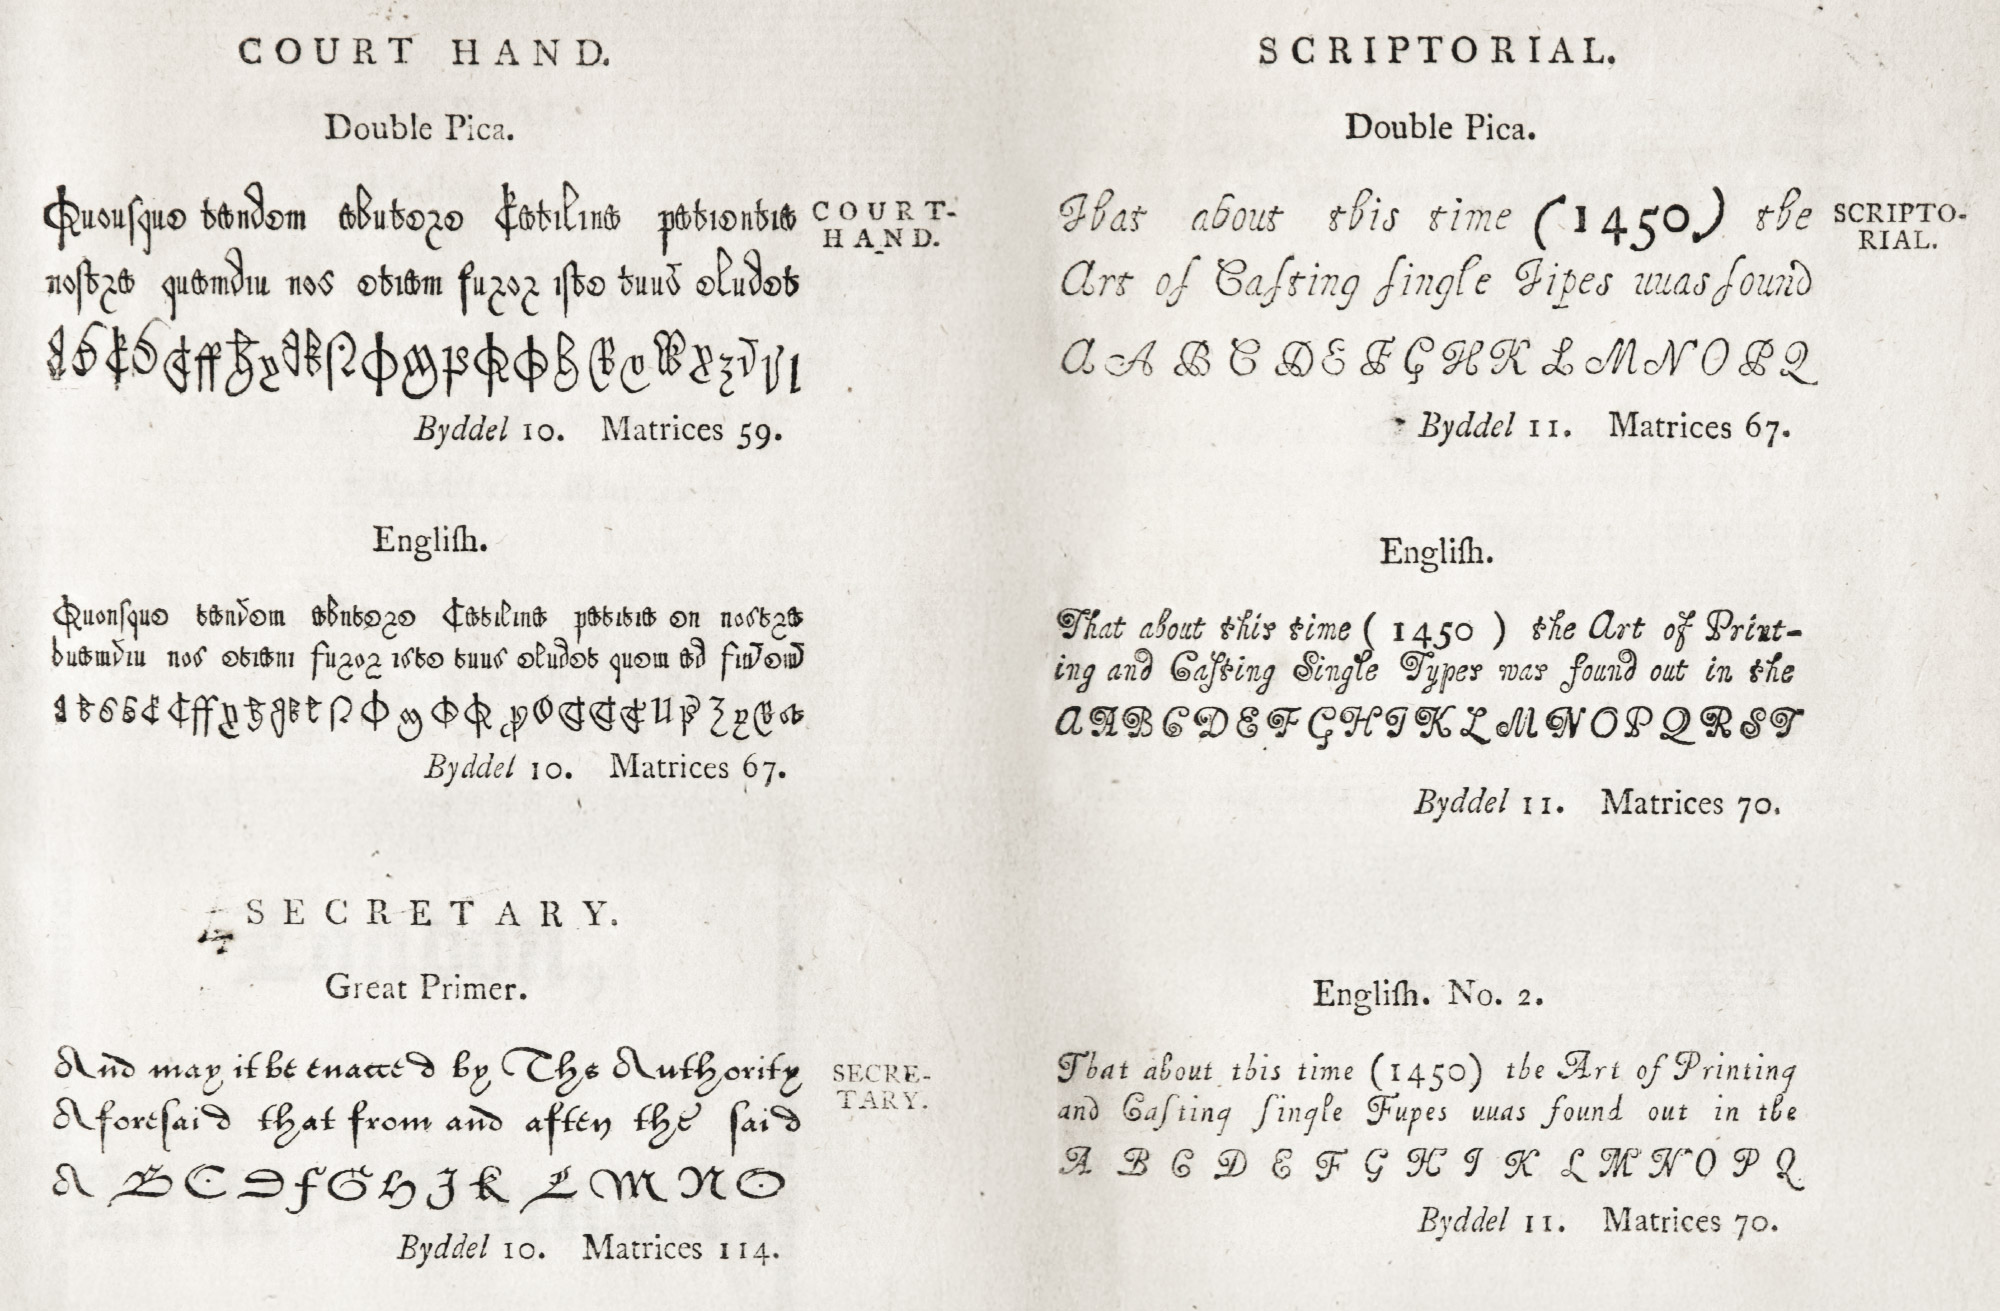 COURT HAND.
Double Pica.
Quousque tandem abutere Catilina patientia
nostra quamdiu nos etiam furor iste tuus eludet
COURT-
HAND.
Byddel 10. Matrices 59.
Engliſh.
Quonſque tandem abutere Catilina patitia en nostra
nos etiani furor iste tuus eludet quem ad
Byddel 10. Matrices 67.
SECRETARY.
Great Primer.
And may it be enacted by The Authority
Aforesaid that from and aften the said
SECRE-
TARY.
A B C D F G H J K L M N O
Byddel 10. Matrices 114.
SCRIPTORIAL.
Double Pica.
That about this time (1450) the
SCRIPTO-
RIAL.
Art of Caſting ſingle Tipes uuas found
A A B C D E F G H K L M N O P Q
Byddel 11. Matrices 67.
Engliſh.
That about this time ( 1450 ) the Art of Print-
ing and Caſting Single Types was found out in the
A A B C D E F G H I K L M N O P Q R S T
Byddel 11. Matrices 70.
Engliſh. No. 2.
That about this time (1450) the Art of Printing
and Caſting ſingle Fupes uuas found out in the
A B C D E F G H I K L M N O P Q
Byddel 11. Matrices 70.